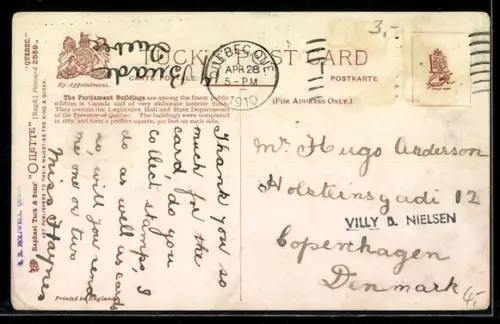 3,-
Quebec
TUCK'S POST CARD
CARTE POSTALE
POSTKARTE
By Appointment.
QUEBEC, QUE.
APR 28
5-PM
1910
The Parliament Buildings are among the finest public
edifices in Canada and of very elaborate interior
They contain the Legislative Hall and State Departments
of the Province of Quebec. The buildings were completed
in 1887, and form a perfect square, 300 feet on each side.
(FOR ADDRESS ONLY.)
Thank you so
much for the
card, do you
collect stamps, I
do as well as cards
so, will you send
me one or two
Miss Haynes
Mr Hugo Anderson
Holsteinsgade 12
VILLY B. NIELSEN
Copenhagen
Denmark
4,-
Printed in England
Raphael Tuck & Sons' "OILETTE" (Regd.) Postcard 2659.
"QUEBEC."
ART PUBLISHERS TO THEIR MAJESTIES THE KING & QUEEN.